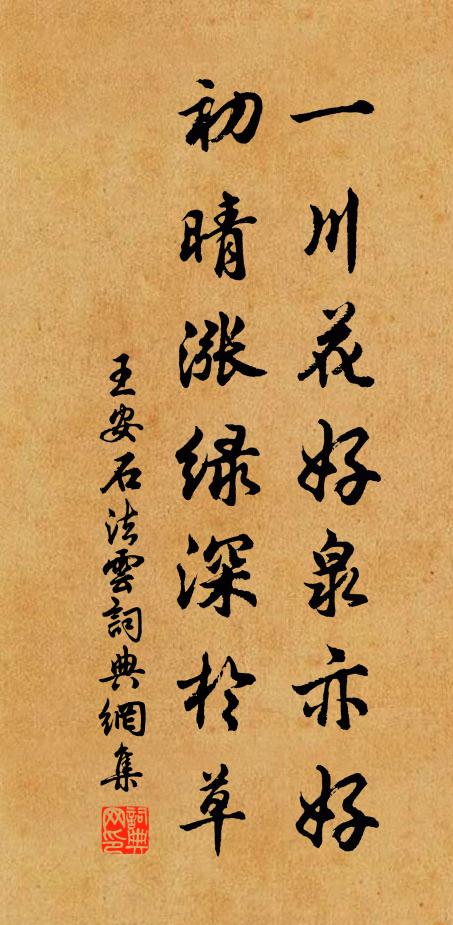 一川花好泉亦好
初晴漲綠深於草
王安石法雲詞典網集
詞典网印